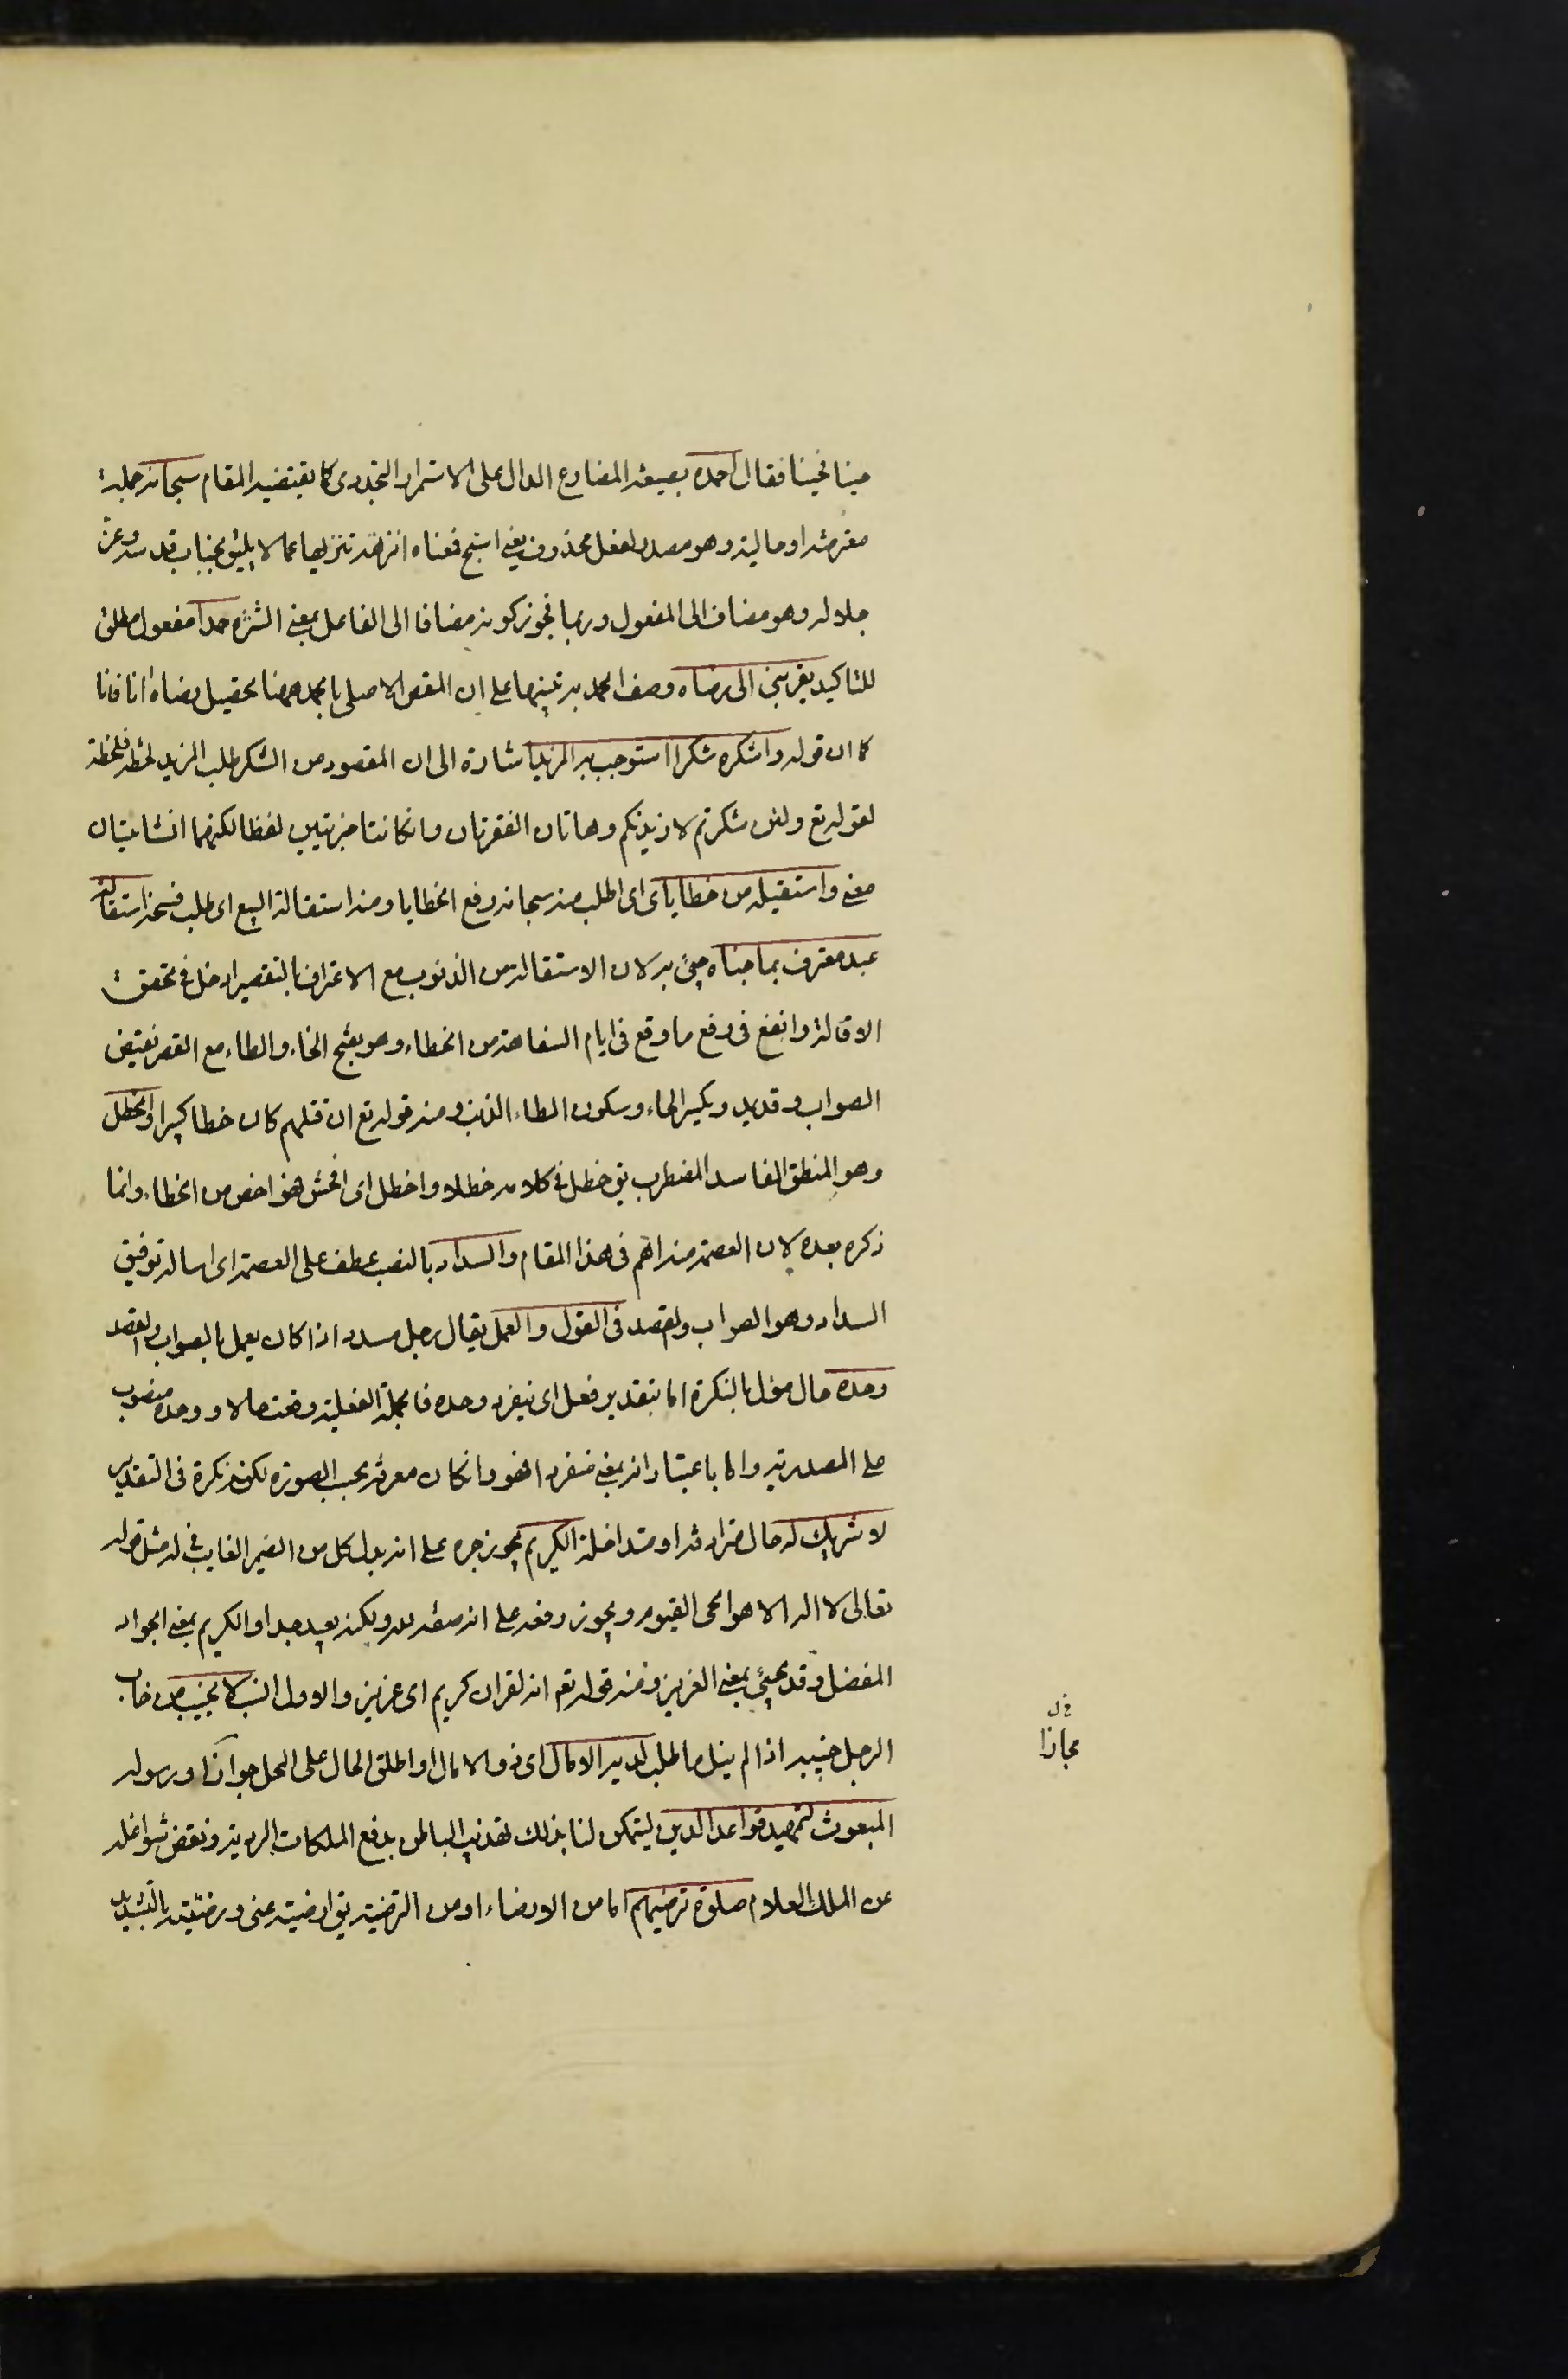 حينا فحينا فقال احمده بصيغة المضارع الدال على الاستمرار التجددى كما يقتضيه المقام سبحانه جملة
معترضة او حالية وهو مصدر لفعل محذوف يعنى اسبح فمعناه انزهه تنزيها عما لا يليق بجناب قدسه وعن
جلاله وهو مضاف الى المفعول وربما يجوز كونه مضافا الى الفاعل بمعنى التنزه حمدا مفعول مطلق
للتاكيد يقربنى الى رضاه وصف الحمد به تنبيها على ان المقصد الاصلى بالحمد ههنا تحصيل رضاه انا فانا
كما ان قوله واشكره شكرا استوجب به المزيد اشارة الى ان المقصود من الشكر طلب المزيد لحظة فلحظة
لقوله تع ولئن شكرتم لازيدنكم وهاتان الفقرتان وانكانتا خبريتين لفظا لكنهما انشائيتان
معنى واستقيله من خطاياى اى اطلب منه سبحانه رفع الخطايا ومنه استقالة البيع اى طلب فسخه استقالة
عبد معترف بما جناه جئ به لان الاستقالة من الذنوب مع الاعتراف بالتقصير ادخل فى تحقق
الاقالة وانفع فى رفع ما وقع فى ايام السفاهة من الخطاء وهو بفتح الخاء والطاء مع القصر نقيض
الصواب وقد يمد وبكسر الخاء وسكون الطاء الذنب ومنه قوله تع ان قتلهم كان خطا كبيرا والخطل
وهو المنطق الفاسد المضطرب يق خطل فى كلامه خطلا واخطل اى افحش فهو اخص من الخطاء وانما
ذكره بعده لان العصمة منه اهم فى هذا المقام والسداد بالنصب عطف على العصمة اى اساله توفيق
السداد وهو الصواب والقصد فى القول والعمل يقال رجل مسدد اذا كان يعمل بالصواب والقصد
وحده حال مؤل بالنكرة اما بتقدير فعل اى ينفرد وحده فالجملة الفعلية وقعت حالا ووحده منصوب
على المصدرية واما باعتبار انه بمعنى منفردا فهو وانكان معرفة بحسب الصورة لكنه نكرة فى التقدير
لا شريك له حال مترادفة او متداخلة الكريم يجوز جره على انه بدل كل من الضمير الغايب فى له مثل قوله
تعالى لا اله الا هو الحى القيوم ويجوز رفعه على انه صفة لله ولكنه بعيد جدا والكريم بمعنى الجواد
المفضل وقد يجئ بمعنى العزيز ومنه قوله تع انه لقران كريم اى عزيز والاول انسب لا يخيب من خاب
الرجل خيبة اذا لم ينل ما طلب لديه الامال اى ذو الامال او اطلق الحال على المحل جوازا ورسوله
المبعوث لتمهيد قواعد الدين ليتمكن لنا بذلك تهذيب الباطن بدفع الملكات الردية ونقض شواغله
عن الملك العلام صلوة ترضيهم اما من الارضاء او من الترضية يق ارضيته عنى ورضيته بالتشديد
خ ل
مجازا